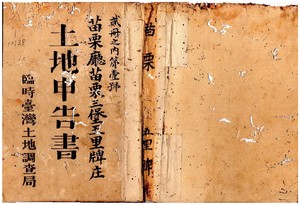 貳冊之內第壹號
苗栗廳苗栗三保五里牌庄
土地申告書
臨時臺灣土地調查局
苗栗
五里牌